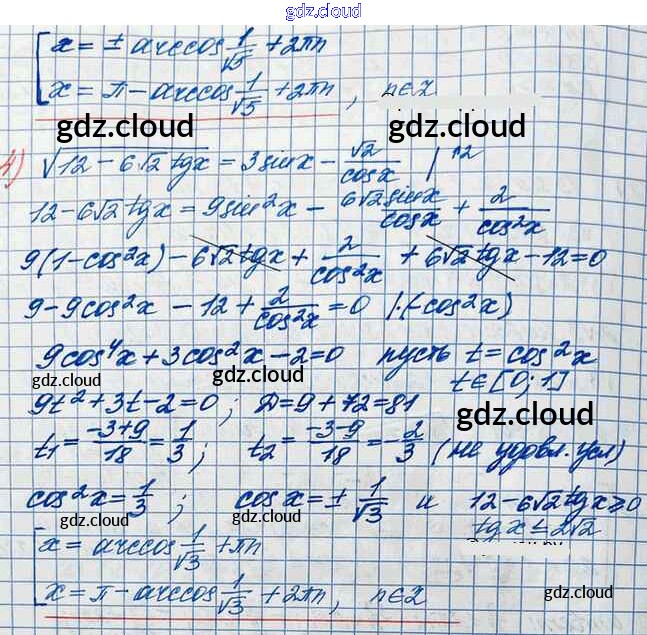 gdz.cloud
x = ± arccos 1/√5 + 2πn
x = π - arccos 1/√5 + 2πn, n∈Z
gdz.cloud gdz.cloud
4) √(12 - 6√2 tgx) = 3sinx - √2/cosx |↑2
12 - 6√2 tgx = 9sin²x - 6√2sinx/cosx + 2/cos²x
9(1-cos²x) - 6√2tgx + 2/cos²x + 6√2tgx - 12 = 0
9 - 9cos²x - 12 + 2/cos²x = 0 |·(-cos²x)
9cos⁴x + 3cos²x - 2 = 0 пусть t = cos²x
gdz.cloud t∈[0; 1]
9t² + 3t - 2 = 0; D = 9 + 72 = 81
gdz.cloud
t₁ = (-3+9)/18 = 1/3; t₂ = (-3-9)/18 = -2/3 (не удовл. усл)
cos²x = 1/3; cosx = ± 1/√3 и 12 - 6√2tgx ≥ 0
gdz.cloud gdz.cloud gdz.cloud
tgx ≤ 2√2
x = arccos 1/√3 + πn
x = π - arccos 1/√3 + 2πn, n∈Z
gdz.cloud gdz.cloud gdz.cloud